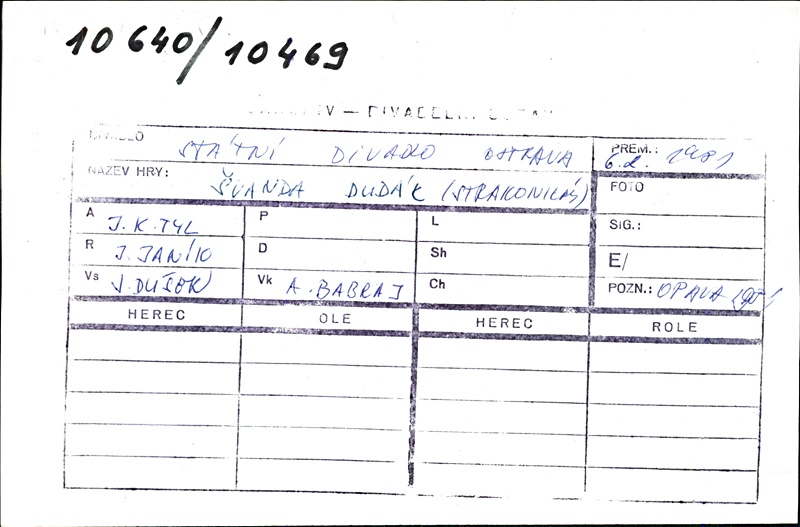 10640/10469
DIVADELNÍ
DIVADLO STÁTNÍ DIVADLO OSTRAVA PREM.: 6.2. 1981
NÁZEV HRY: ŠVANDA DUDÁK (STRAKONICKÝ) FOTO
A J.K.TYL P L SIG.:
R J. JANÍK D Sh E/
Vs V. DUŠEK Vk A. BABRAJ Ch POZN.: OPAVA 1981
HEREC OLE HEREC ROLE